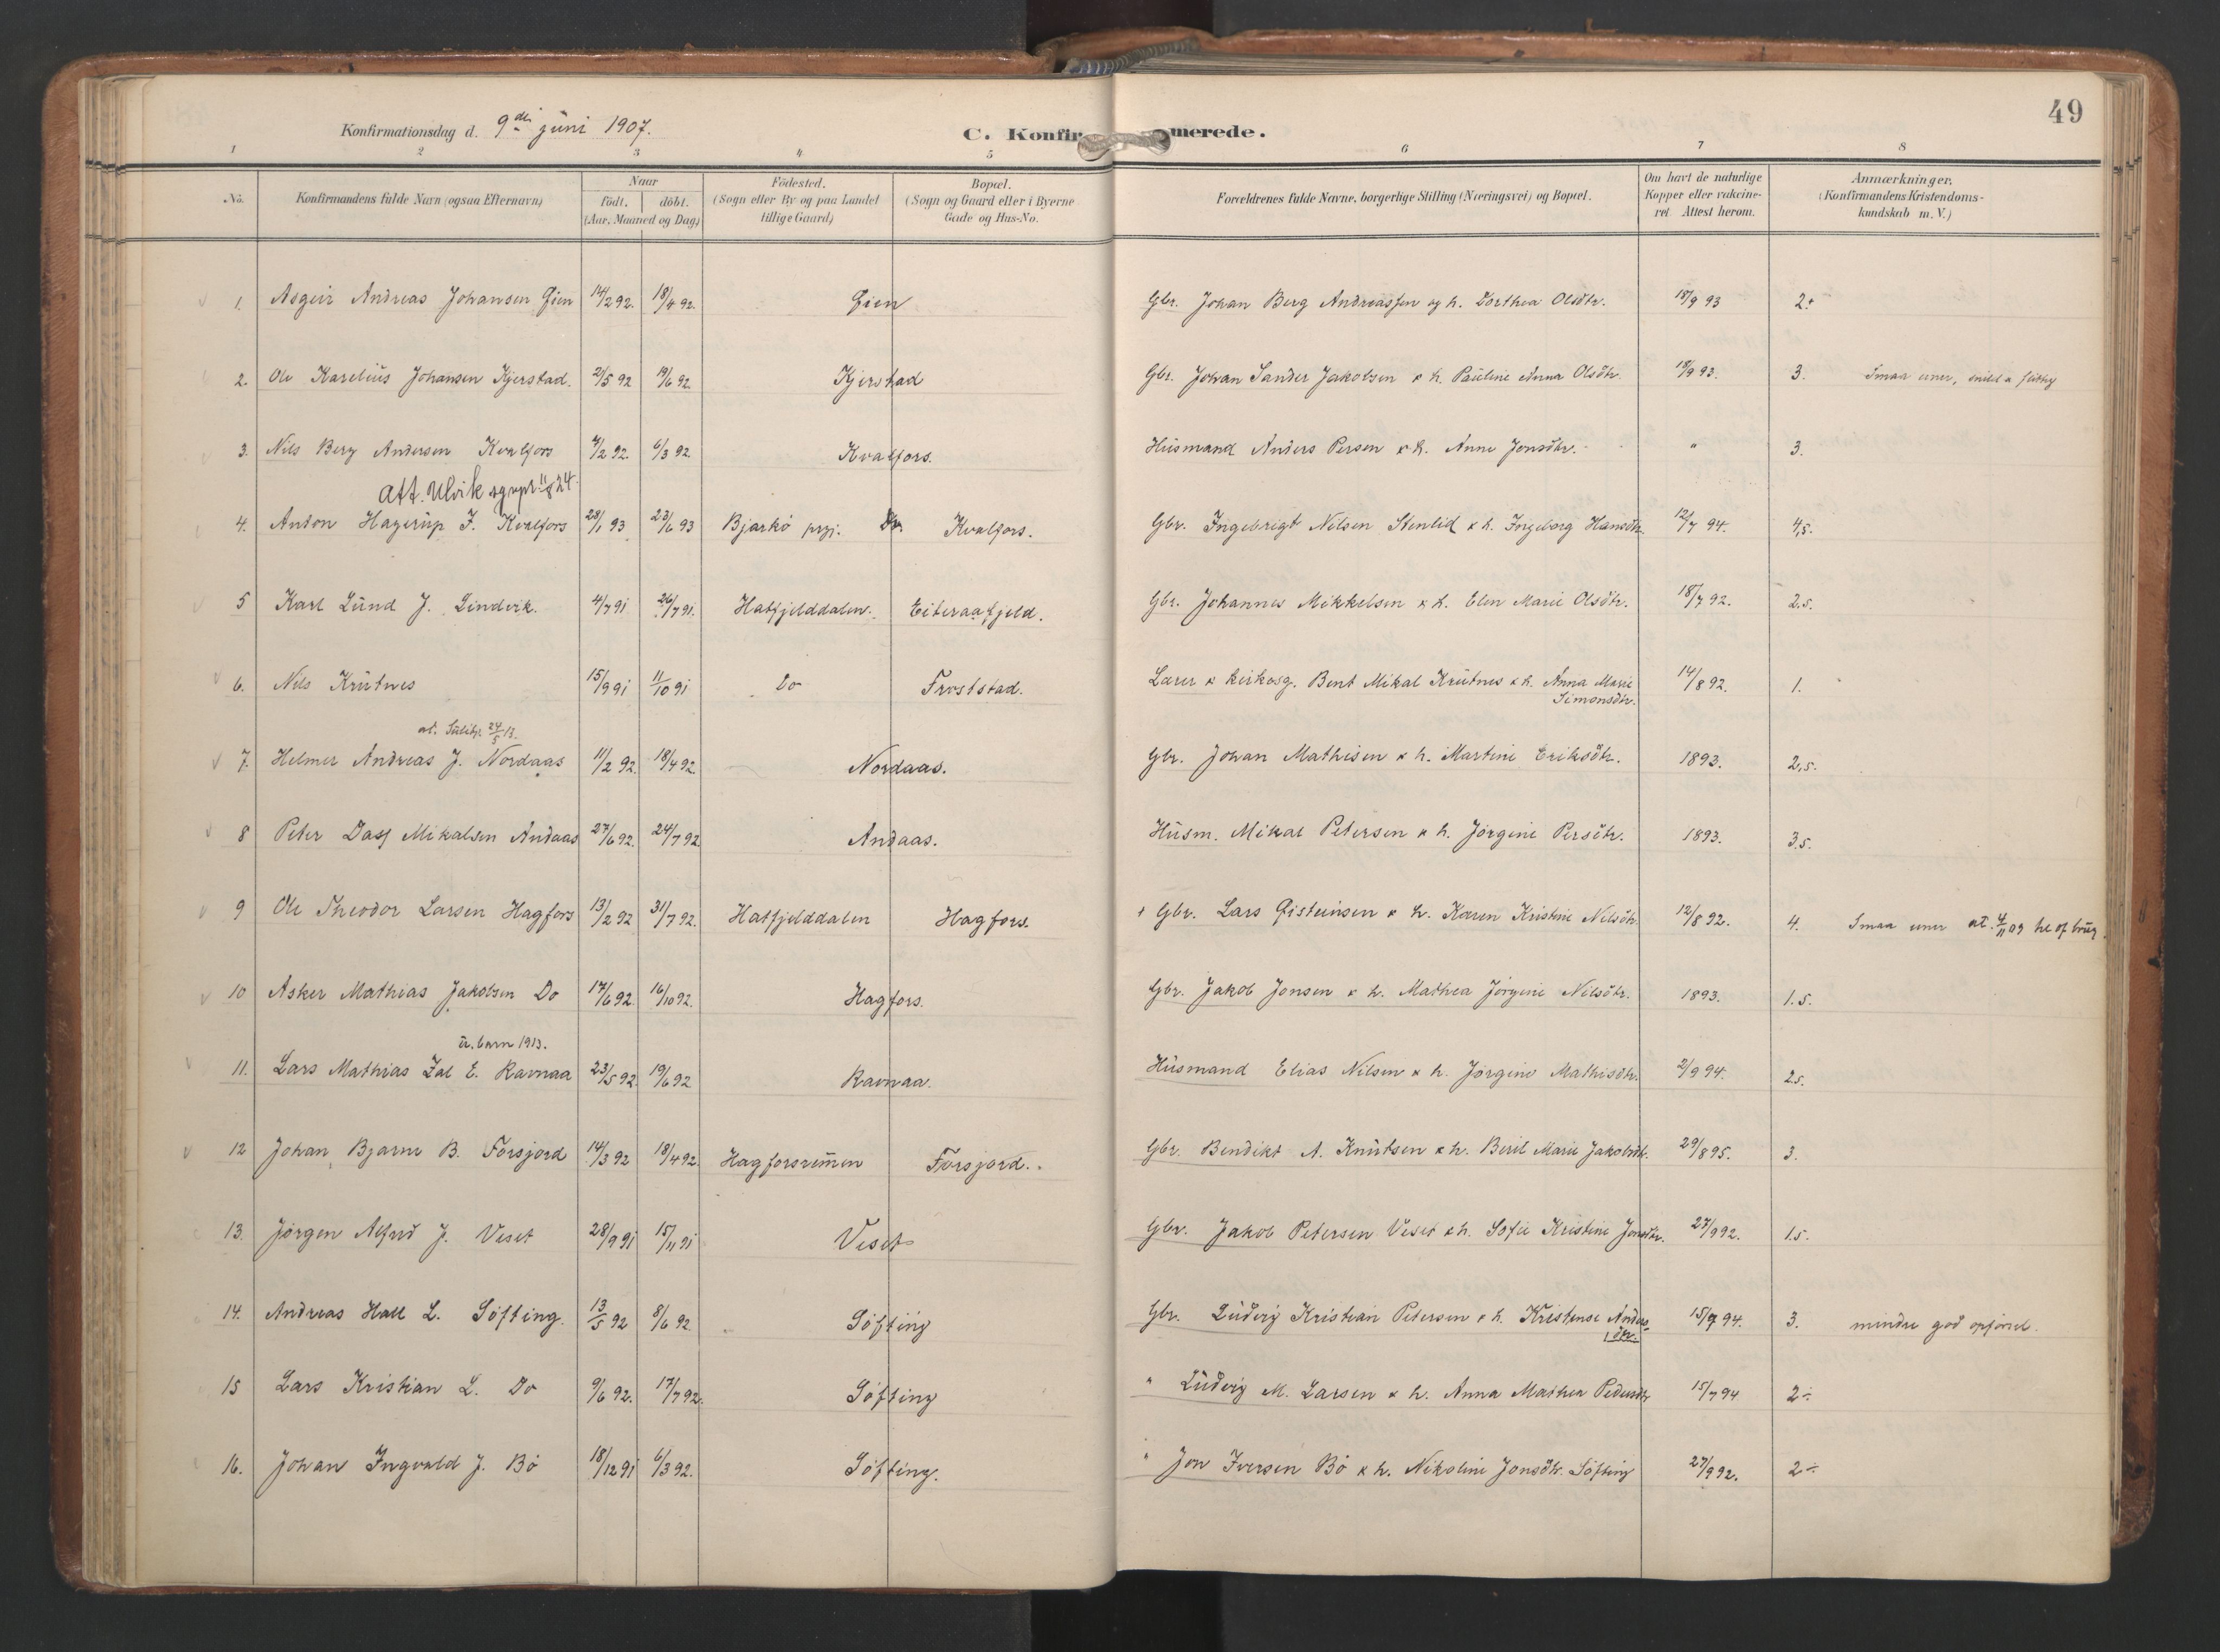 49
Konfirmationsdag d. 9de juni 1907. C. Konfir merede.
1 2 3 4 5 6 7 8
No. Konfirmandens fulde Navn (ogsaa Efternavn) Naar födt. döbt. (Aar, Maaned og Dag) Födested. (Sogn eller By og paa Landet tillige Gaard) Bopæl. (Sogn og Gaard eller i Byerne Gade og Hus-No. Forældrenes fulde Navne, borgerlige Stilling (Næringsvei) og Bopæl. Om havt de naturlige Kopper eller vakcineret Attest herom. Anmærkninger, (Konfirmandens Kristendomskundskab m. V.)
1. Asgeir Andreas Johansen Øien 14/2 92. 18/4 92. Øien Gbr. Johan Berg Andreassen og h. Dorthea Olsdtr. 18/9 93 2+
2. Ole Karelius Johansen Kjerstad 2/5 92 19/6 92. Kjerstad Gbr. Johan Sander Jakobsen & h. Pauline Anna Olsdtr. 18/9 93. 3. Smaa evner, snild & flittig
3. Nils Berg Andersen Kvalfors 4/2 92. 6/3 92. Kvalfors. Husmand Anders Persen & h. Anne Jonsdtr. " 3.
Att. Ulvik 24
4. Anton Hagerup I. Kvalfors 28/1 93 23/6 93 Bjarkö prgj. Kvalfors. Gbr. Ingebrigt Nilsen Stenlid & h. Ingeborg Hansdtr. 12/7 94. 4,5.
5 Karl Lund J. Lindvik. 4/7 91 26/7 91. Hatfjelddalen. Eiteraafjeld. Gbr. Johannes Mikkelsen & h. Elen Marie Olsdtr. 18/7 92. 2.5.
6. Nils Krutnes 15/9 91 11/10 91 Do Froststad. Lærer & kirkesg. Bent Mikal Krutnes & h. Anna Marie Simonsdtr. 14/8 92. 1.
at. 24/5 13.
7. Helmer Andreas J. Nordaas 11/2 92. 18/4 92. Nordaas. Gbr. Johan Mathisen & h. Martine Eriksdtr. 1893. 2,5.
8 Peter Dass Mikalsen Andaas 27/6 92. 24/7 92 Andaas. Husm. Mikal Petersen & h. Jörgine Persdtr. 1893. 3.5.
9 Ole Theodor Larsen Hagfors 13/2 92 31/7 92. Hatfjelddalen Hagfors. + Gbr. Lars Øisteinsen & h. Karen Kristine Nilsdtr. 12/8 92. 4. Smaa evner at. 4/11 09
10 Asker Mathias Jakobsen Do 17/6 92. 16/10 92. Hagfors. Gbr. Jakob Jonsen & h. Mathea Jörgine Nilsdtr. 1893. 1.5.
u. barn 1913.
11. Lars Mathias Zal E. Ravnaa 23/5 92. 19/6 92 Ravnaa. Husmand Elias Nilsen & h. Jörgine Mathisdtr. 2/9 94. 2.5.
12 Johan Bjarne B. Forsjord 14/3 92 18/4 92. Hagforsremmen Forsjord. Gbr. Bendikt A. Knutsen & h. Beril Marie Jakobsdtr. 29/8 95. 3.
13. Jörgen Alfred J. Veset 28/9 91 15/11 91 Veset Gbr. Jakob Petersen Veset & h. Sofie Kristine Jonsdtr. 27/9 92. 1.5.
14. Andreas Hall L. Söfting. 13/5 92 8/6 92. Söfting Gbr. Ludvig Kristian Petersen & h. Kristense Andersdtr. 15/7 94. 3. mindre god opförsel.
15 Lars Kristian L. Do 9/6 92. 17/7 92. Söfting " Ludvig M. Larsen & h. Anna Mathea Pedersdtr 15/7 94 2÷
16. Johan Ingvald J. Bö 18/12 91 6/3 92. Söfting. " Jon Iversen Bö & h. Nikoline Jonsdtr. Söfting 27/9 92. 2÷